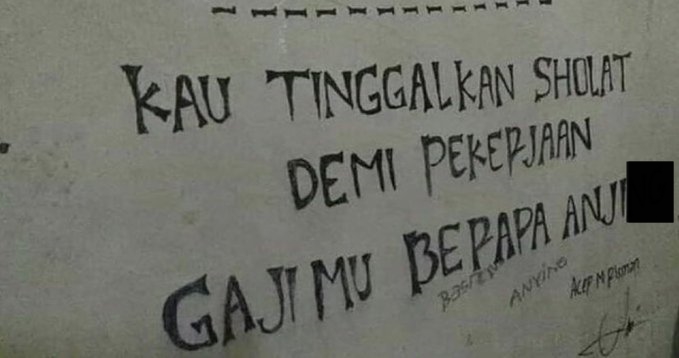 KAU TINGGALKAN SHOLAT
DEMI PEKERJAAN
GAJI MU BERAPA ANJI
ANYING
Acep M